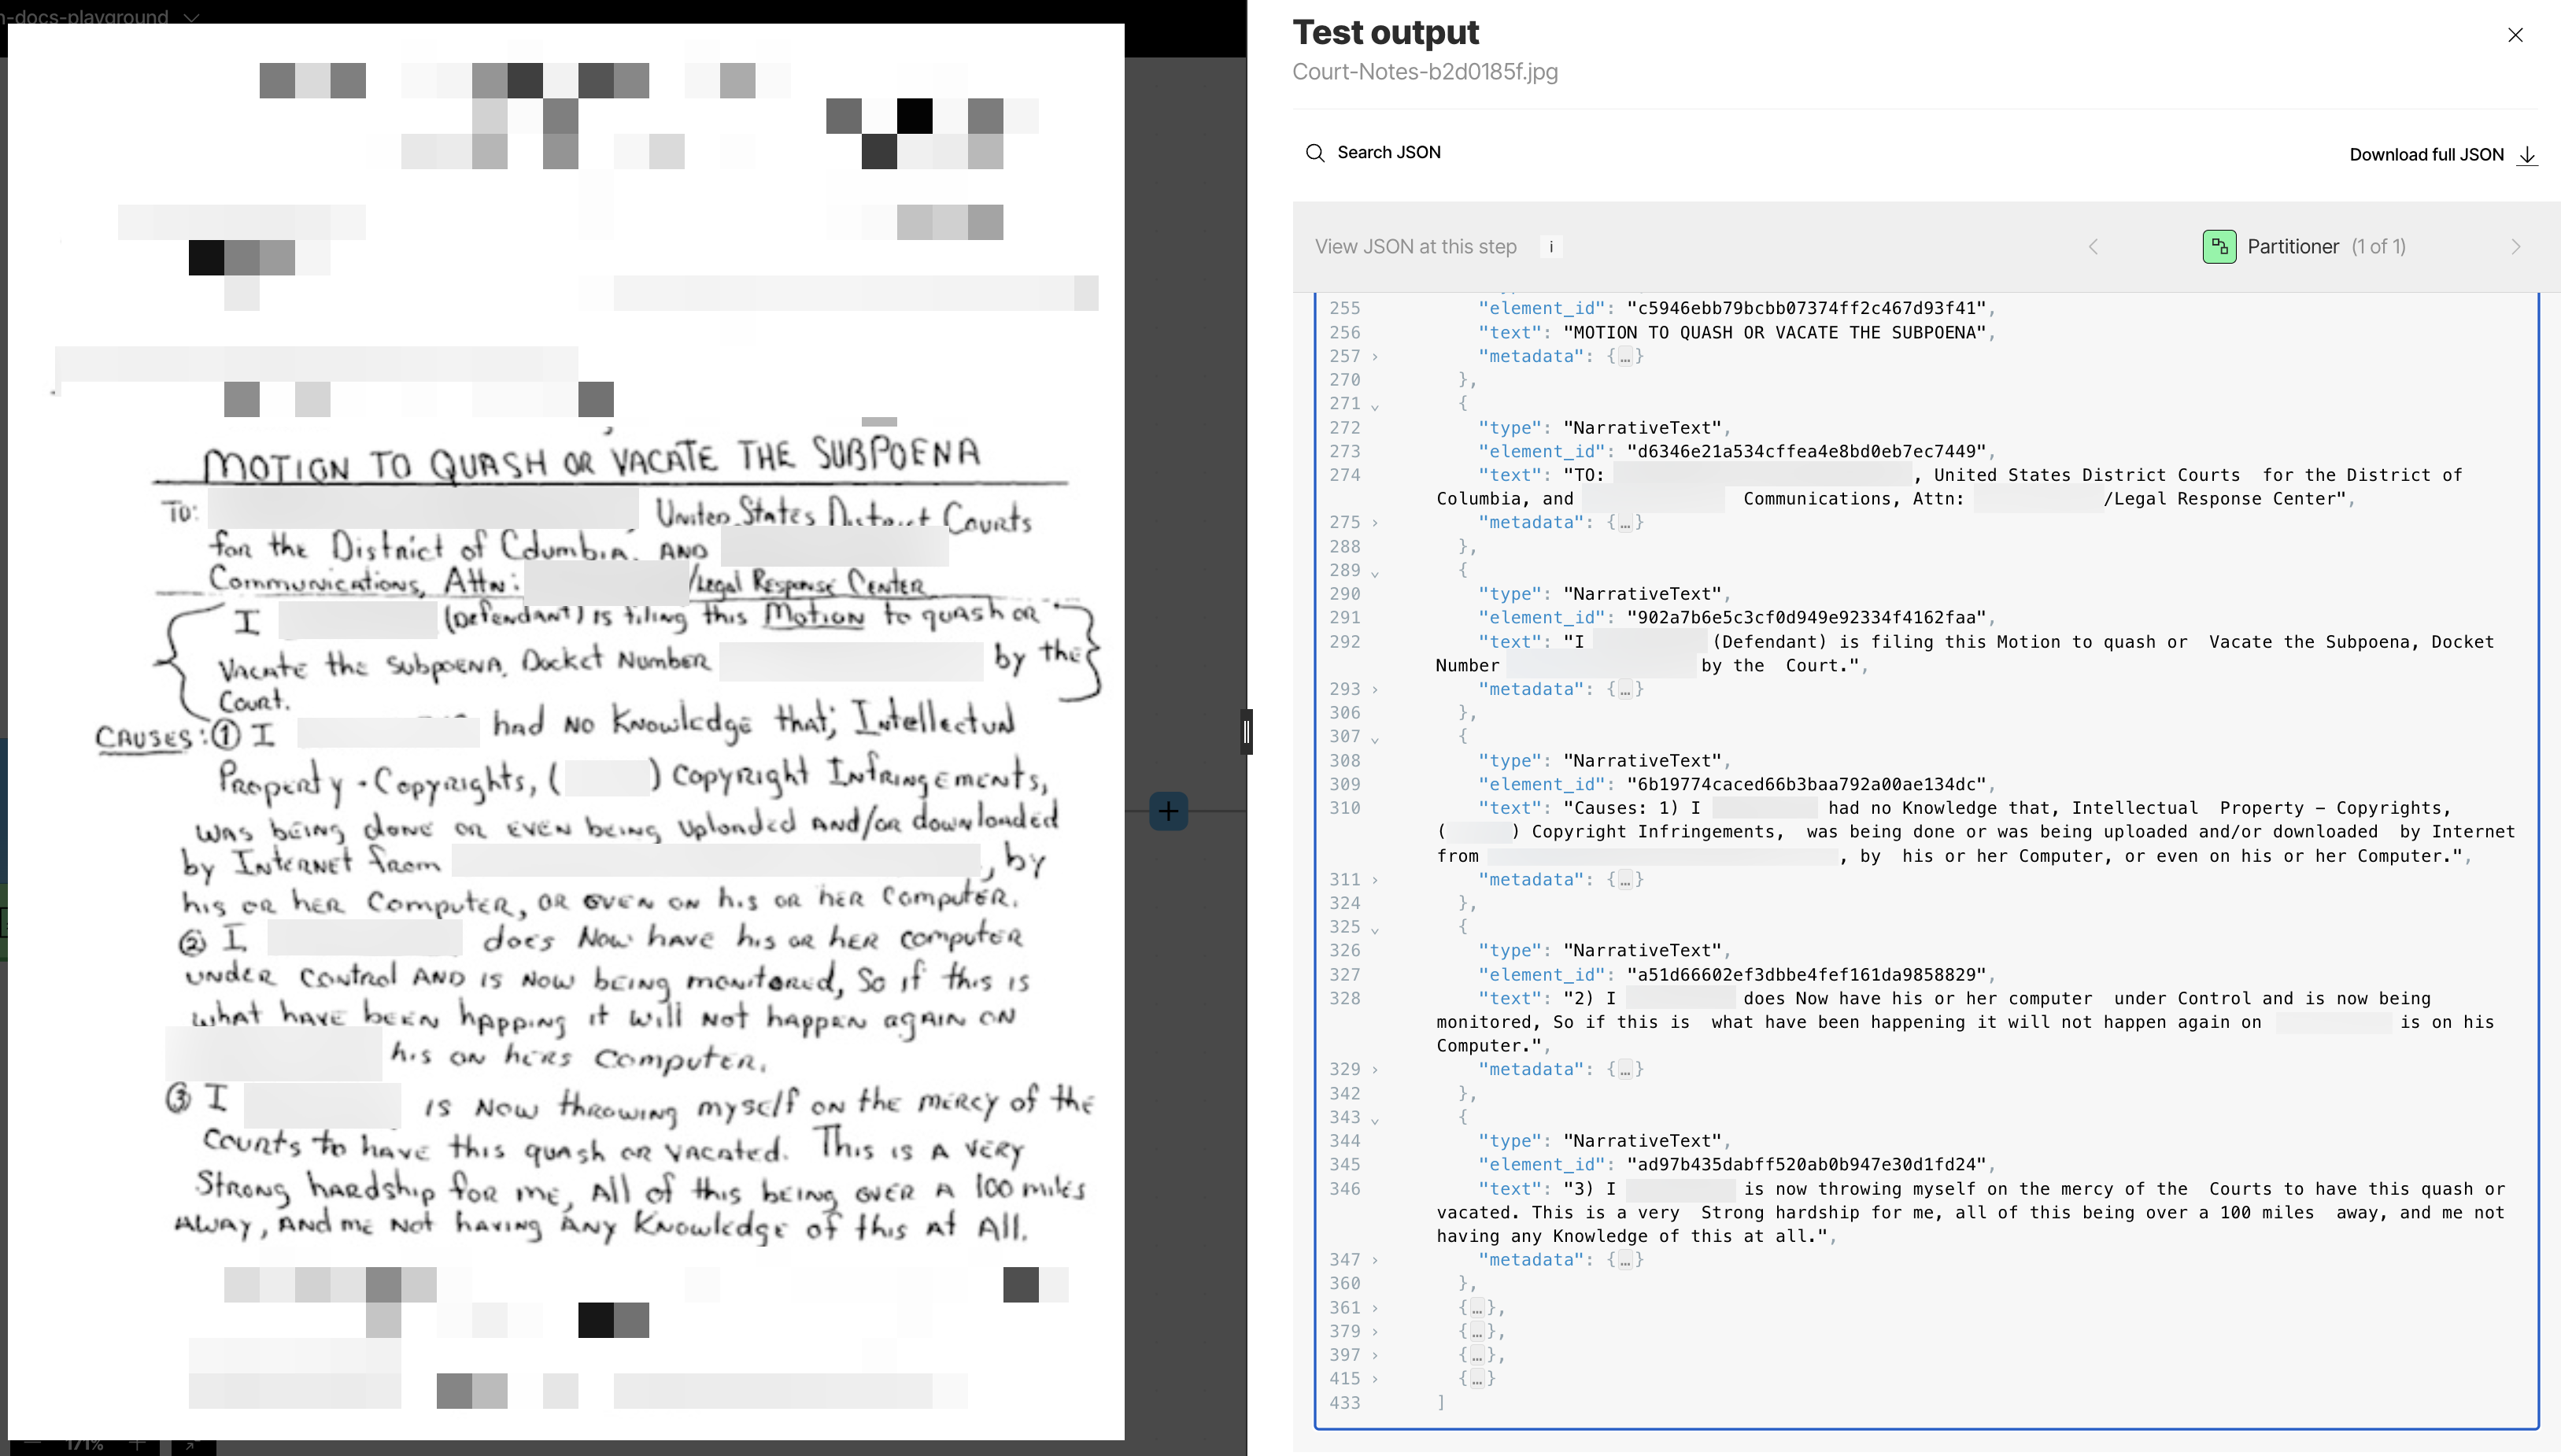 n-docs-playground
MOTION TO QUASH OR VACATE THE SUBPOENA
TO: United States District Courts
for the District of Columbia, AND
Communications, Attn: /Legal Response Center
I (Defendant) is filing this Motion to quash or
Vacate the Subpoena, Docket Number by the
Court.
CAUSES: ① I had no Knowledge that; Intellectual
Property - Copyrights, ( ) Copyright Infringements,
was being done or even being uploaded AND/or downloaded
by Internet from , by
his or her Computer, or even on his or her Computer.
② I does Now have his or her computer
under Control AND is now being monitored, So if this is
what have been happing it will not happen again on
his on hers Computer.
③ I is now throwing myself on the mercy of the
Courts to have this quash or vacated. This is a very
Strong hardship for me, All of this being over a 100 miles
away, and me not having any Knowledge of this at All.
171%
Test output
Court-Notes-b2d0185f.jpg
Search JSON
Download full JSON
View JSON at this step i
Partitioner (1 of 1)
255 "element_id": "c5946ebb79bcbb07374ff2c467d93f41",
256 "text": "MOTION TO QUASH OR VACATE THE SUBPOENA",
257 "metadata": {…}
270 },
271 {
272 "type": "NarrativeText",
273 "element_id": "d6346e21a534cffea4e8bd0eb7ec7449",
274 "text": "TO: , United States District Courts for the District of
Columbia, and Communications, Attn: /Legal Response Center",
275 "metadata": {…}
288 },
289 {
290 "type": "NarrativeText",
291 "element_id": "902a7b6e5c3cf0d949e92334f4162faa",
292 "text": "I (Defendant) is filing this Motion to quash or Vacate the Subpoena, Docket
Number by the Court.",
293 "metadata": {…}
306 },
307 {
308 "type": "NarrativeText",
309 "element_id": "6b19774caced66b3baa792a00ae134dc",
310 "text": "Causes: 1) I had no Knowledge that, Intellectual Property – Copyrights,
( ) Copyright Infringements, was being done or was being uploaded and/or downloaded by Internet
from , by his or her Computer, or even on his or her Computer.",
311 "metadata": {…}
324 },
325 {
326 "type": "NarrativeText",
327 "element_id": "a51d66602ef3dbbe4fef161da9858829",
328 "text": "2) I does Now have his or her computer under Control and is now being
monitored, So if this is what have been happening it will not happen again on is on his
Computer.",
329 "metadata": {…}
342 },
343 {
344 "type": "NarrativeText",
345 "element_id": "ad97b435dabff520ab0b947e30d1fd24",
346 "text": "3) I is now throwing myself on the mercy of the Courts to have this quash or
vacated. This is a very Strong hardship for me, all of this being over a 100 miles away, and me not
having any Knowledge of this at all.",
347 "metadata": {…}
360 },
361 {…},
379 {…},
397 {…},
415 {…}
433 ]